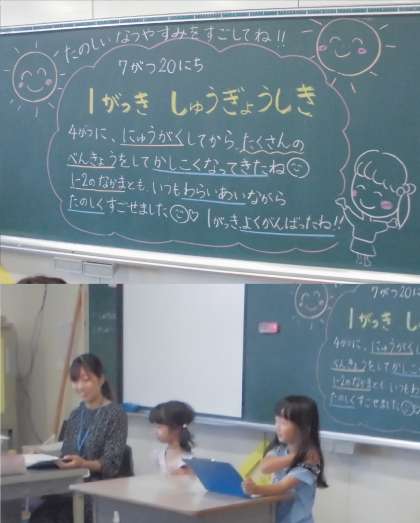 たのしいなつやすみをすごしてね!!
7がつ20にち
1がっき しゅうぎょうしき
4がつに、にゅうがくしてから、たくさんの
べんきょうをしてかしこくなってきたね
1-2のなかまとも、いつもわらいあいながら
たのしくすごせました♡ 1がっき、よくがんばったね!!
7がつ20に
1がっき し
4がつに、にゅうがくし
べんきょうをしてかし
1-2のなかまとも、いつもわ
たのしくすごせました